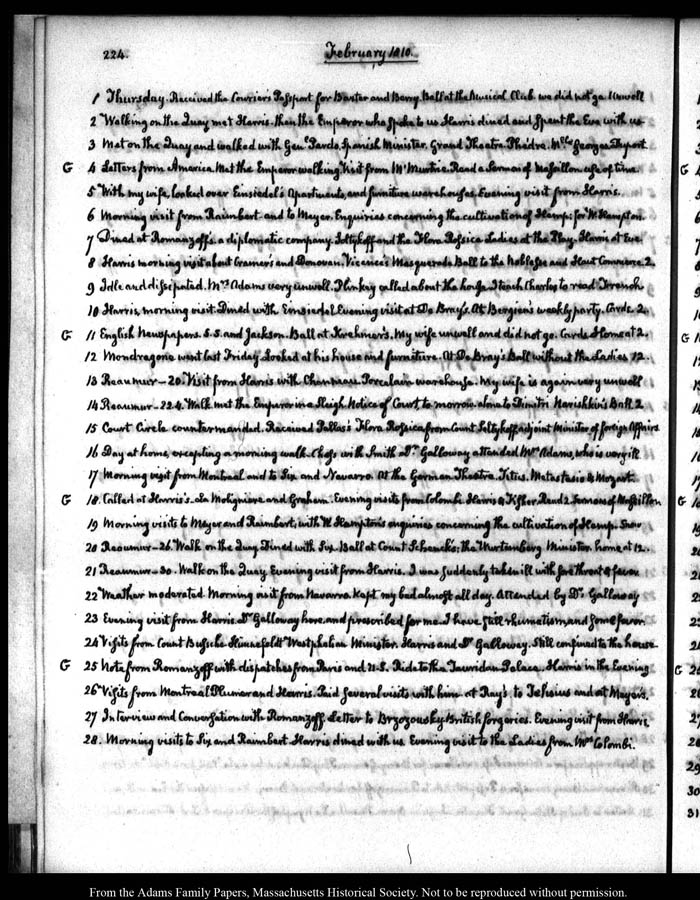 224.
February 1810.
1 Thursday. Received the Couriers Passport for Baxter and Berry. Ball at the Musical Club. we did not go. Unwell
2 Walking on the Quay met Harris. then the Emperor who spoke to us Harris dined and spent the Eve with us
3 Met on the Quay and walked with Genl. Pardo, Spanish Minister. Grand Theatre. Phèdre. Mlle. Georges.
G 4 Letters from America. Met the Emperor walking. Visit from Mr. Read a Sermon of Massillon use of time.
5 With my wife, looked over Einsiedel's Apartments, and furniture warehouses. Evening visit from Harris.
6 Morning visit from Raimbert. and to Meyer. Enquiries concerning the cultivation of Hemp: for W. Hampton
7 Dined at Romanzoff's. a diplomatic company. Soltykoff and the Flora Rossica Ladies at the Play. Harris at Eve
8 Harris morning visit about Cramer's and Donovan. Vicence's Masquerade Ball to the Noblesse and Haut Commerce. 2.
9 Idle and dissipated. Mrs. Adams very unwell. Plinkey called about the house. I teach Charles to read French
10 Harris, morning visit. Dined with Einsiedel Evening visit at De Bray's. At Bergien's weekly party. Cards. 2.
G 11 English Newspapers. S.S. and Jackson. Ball at Krehmer's. My wife unwell and did not go. Cards Home at 2.
12 Mondragone went last Friday. Looked at his house and furniture. At De Bray's Ball without the Ladies 12.
13 Reaumur – 20. Visit from Harris with Porcelain warehouse. My wife is again very unwell
14 Reaumur – 22.4. Walk met the Emperor in a Sleigh Notice of Court, to morrow. alone to Dimitri Narishkin's Ball 2
15 Court Circle countermanded. Received Pallas's Flora Rossica from Count Soltykoff adjoint Minister of foreign Affairs
16 Day at home, excepting a morning walk. Chess with Smith Dr. Galloway attended Mrs. Adams, who is very ill
17 Morning visit from Montreal and to Six and Navarro. At the German Theatre. Titus. Metastasio & Mozart.
G 18. Called at Harris's. and Graham. Evening visits from Colombi Harris & Fisher Read 2. Sermons of Massillon
19 Morning visits to Meyer and Raimbert, with W. Hampton's enquiries concerning the cultivation of Hemp.
20 Reaumur – 26 Walk on the Quay. Dined with Six. Ball at Count Schenck's: the Wurtemberg Minister. home at 12.
21 Reaumur – 30. Walk on the Quay Evening visit from Harris. I was suddenly taken ill with sore throat & fever
22 Weather moderated. Morning visit from Navarro. Kept my bed almost all day. Attended by Dr. Galloway
23 Evening visit from Harris. Dr. Galloway here. and prescribed for me. I have still rheumatism and some fever
24 Visits from Count Bussche Hunnefeldt Westphalian Minister. Harris and Dr. Galloway. Still confined to the house
G 25 Note from Romanzoff with dispatches from Paris and U.S. Ride to the Tauridan Palace. Harris in the Evening
26 Visits from Montreal Plumer and Harris. Paid several visits with him at Ray's to Jelsius and at Mayer's.
27 Interview and Conversation with Romanzoff. Letter to Brzozousky. British forgeries. Evening visit from Harris
28. Morning visits to Six and Raimbert. Harris dined with us. Evening visit to the Ladies from Mme Colombi.
From the Adams Family Papers, Massachusetts Historical Society. Not to be reproduced without permission.